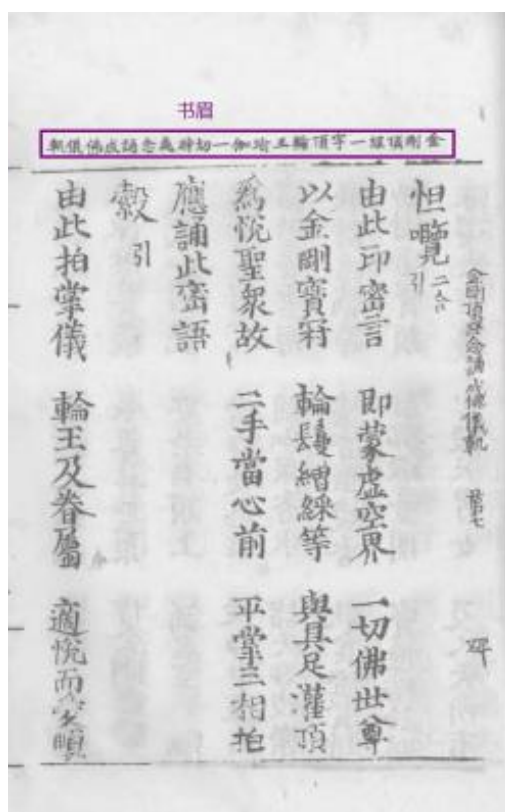 书眉
金剛頂經一字頂輪王瑜伽一切時處念誦成佛儀軌
怛囕二合引
由此印密言 即蒙虛空界 一切佛世尊
以金剛寶冠 輪鬘繒綵等 與具足灌頂
爲悅聖衆故 二手當心前 平掌三相拍
應誦此密語
縠引
由此拍掌儀 輪王及眷屬 適悅而